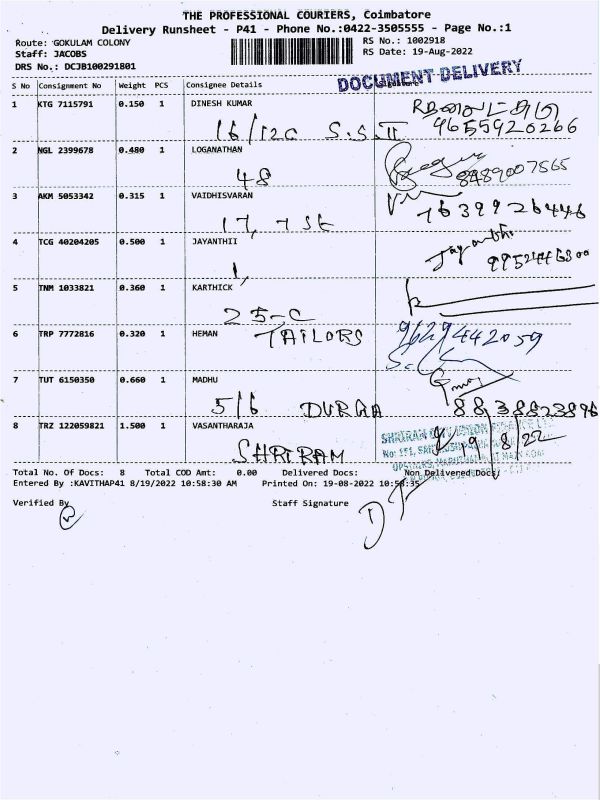 THE PROFESSIONAL COURIERS, Coimbatore
Delivery Runsheet - P41 - Phone No.:0422-3505555 - Page No.:1
Route: GOKULAM COLONY
RS No.: 1002918
Staff: JACOBS
RS Date: 19-Aug-2022
DRS No.: DCJB100291801
DOCUMENT DELIVERY
S No Consignment No Weight PCS Consignee Details
1 KTG 7115791 0.150 1 DINESH KUMAR
16/12C S.S.II 9655920266
2 NGL 2399678 0.480 1 LOGANATHAN
48 8489007565
3 AKM 5053342 0.315 1 VAIDHISVARAN
17, 7 St 7639926446
4 TCG 40204205 0.500 1 JAYANTHII Jayanthi
1, 9952446300
5 TNM 1033821 0.360 1 KARTHICK
25-C
6 TRP 7772816 0.320 1 HEMAN 9629442059
TAILORS
7 TUT 6150350 0.660 1 MADHU
5/6 DURGA 8838823896
8 TRZ 122059821 1.500 1 VASANTHARAJA
SHRIRAM 19/8/22
Total No. Of Docs: 8 Total COD Amt: 0.00 Delivered Docs: Non Delivered Docs:
Entered By :KAVITHAP41 8/19/2022 10:58:30 AM Printed On: 19-08-2022 10:58:35
Verified By Staff Signature